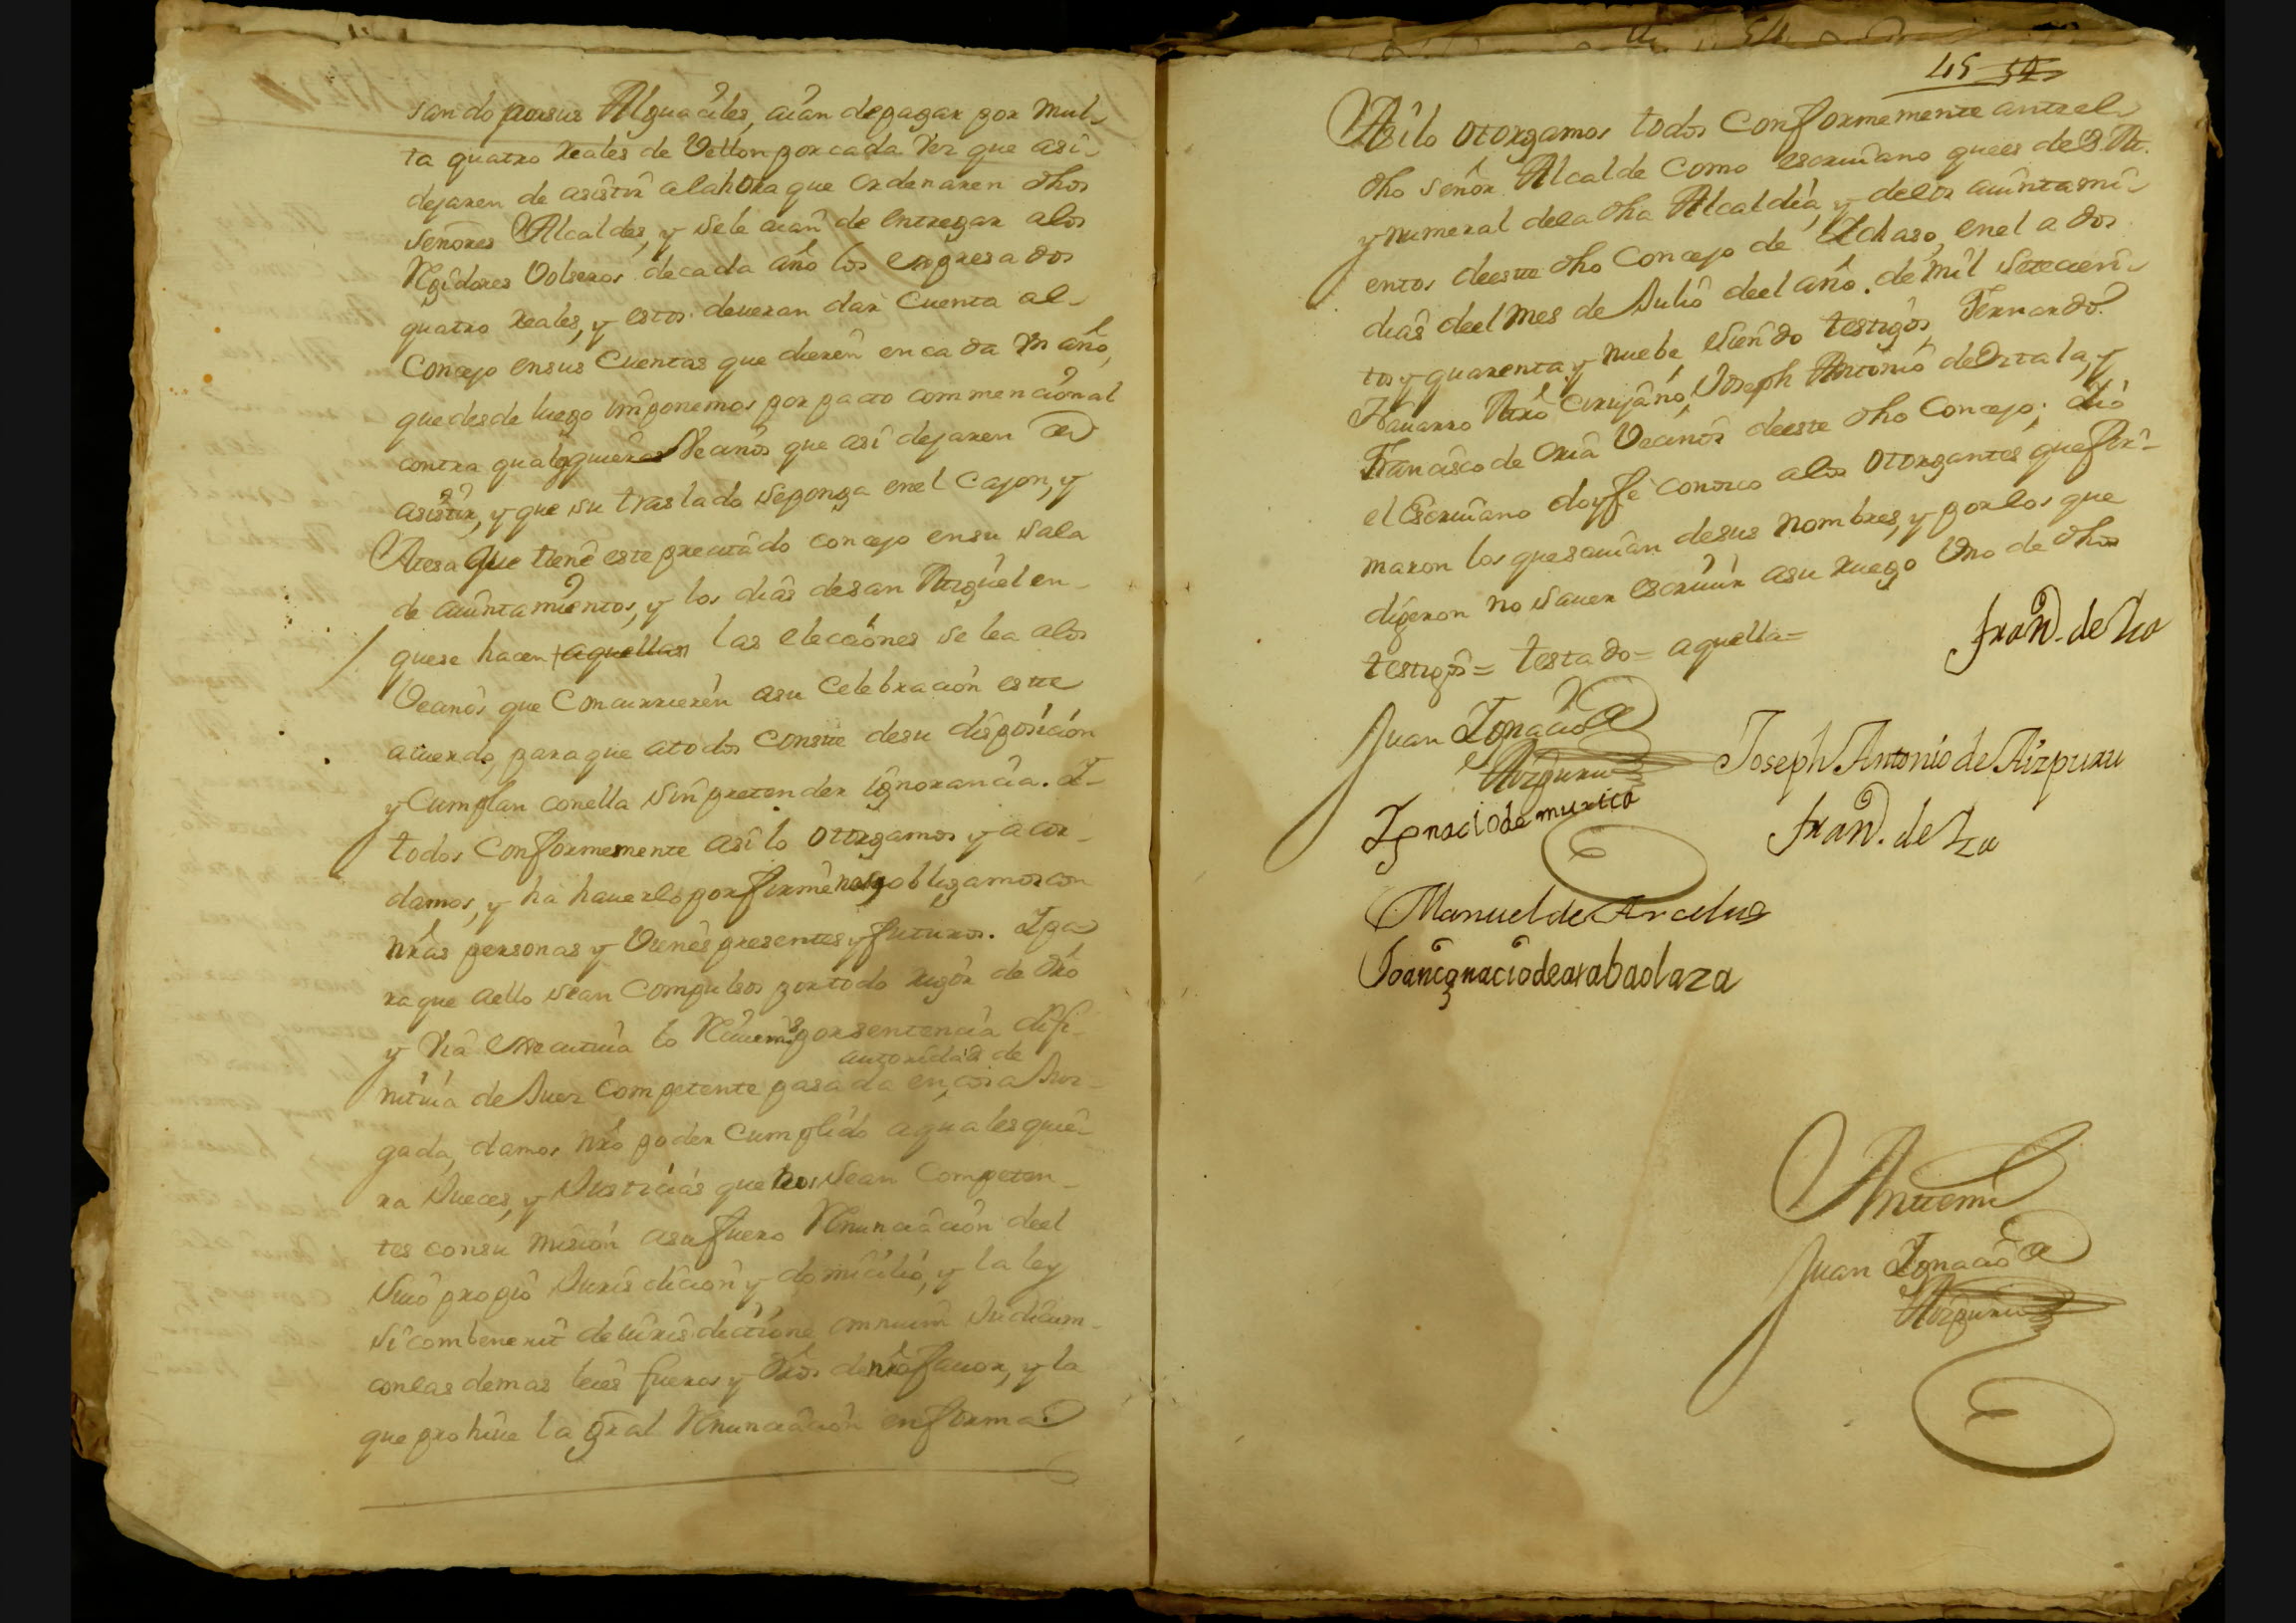 sando por sus Alguaciles, aian de pagar por mul-
ta quatro Reales de Vellon por cada Vez que asi-
dejaren de asistir a la hora que ordenaren dhos
Señores Alcaldes, y se le aian de entregar a los
Regidores Volseros de cada año los expresados
quatro Reales, y estos deueran dar Cuenta al-
Concejo en sus Cuentas que dieren en cada Vn año,
que desde luego imponemos por pacto commencional
contra qualesquiera Vecinos que asi dejaren de
asistir, y que su traslado se ponga en el Cajon, y
Mesa que tiene este precitado concejo en su Sala
de auintamientos, y los dias de san Miguel en-
que se hacen aquellas las elecciones se lea a los
Vecinos que Concurrieren a su Celebracion este
acuerdo, para que a todos Conste de su disposicion
y Cumplan con ella Sin pretender ignorancia. I-
todos Conformemente asi lo otorgamos y acor-
damos, y ha hauerlo por firme nos obligamos con
nrãs personas y Vienes presentes y futuros. I pa
ra que a ello sean Compulsos por todo rigor de dro
y Via executiua lo Reciuimos por sentencia difi-
autoridad de
nitiua de Juez Competente pasada en cosa Juz-
gada, damos nrõ poder Cumplido a qualesquie-
ra Jueces, y Justicias que nos Sean Competen-
tes con su mision a su fuero Renunciacion del
Suio propio Jurisdicion y domicilio, y la ley
Si combenerit de iurisdictione omnium Judicum-
con las demas leies fueros y dros de nrõ fauor, y la
que prohiue la gral Renunciacion en forma.
45 52
Asi lo otorgamos todos Conformemente antel
dho Señor Alcalde Como escriuano que es de S. M.
y numeral de la dha Alcaldia, y de los auintami-
entos de este dho Concejo de Ichaso, en el a dos
dias deel mes de Julio deel año de mil Setecien-
tos y quarenta y nuebe, siendo testigos Fernando
Nauarro Mrõ Cirujano, Joseph Antonio de Oztala, y
Francisco de Oria Vecinos de este dho Concejo; dio
el Escriuano doy fe conozco a los Otorgantes que fir-
maron los que sauian de sus nombres, y por los que
digeron no Sauer escriuir a su Ruego Uno de dhos
testigos= testado= aquella=
Juan Ignacio de
Aizpuru
Joseph Antonio de Aizpuru
Ignacio de muxica
Manuel de Arcelus
Joan ignacio de arabaolaza
Antemi
Juan Ignacio de
Aizpuru